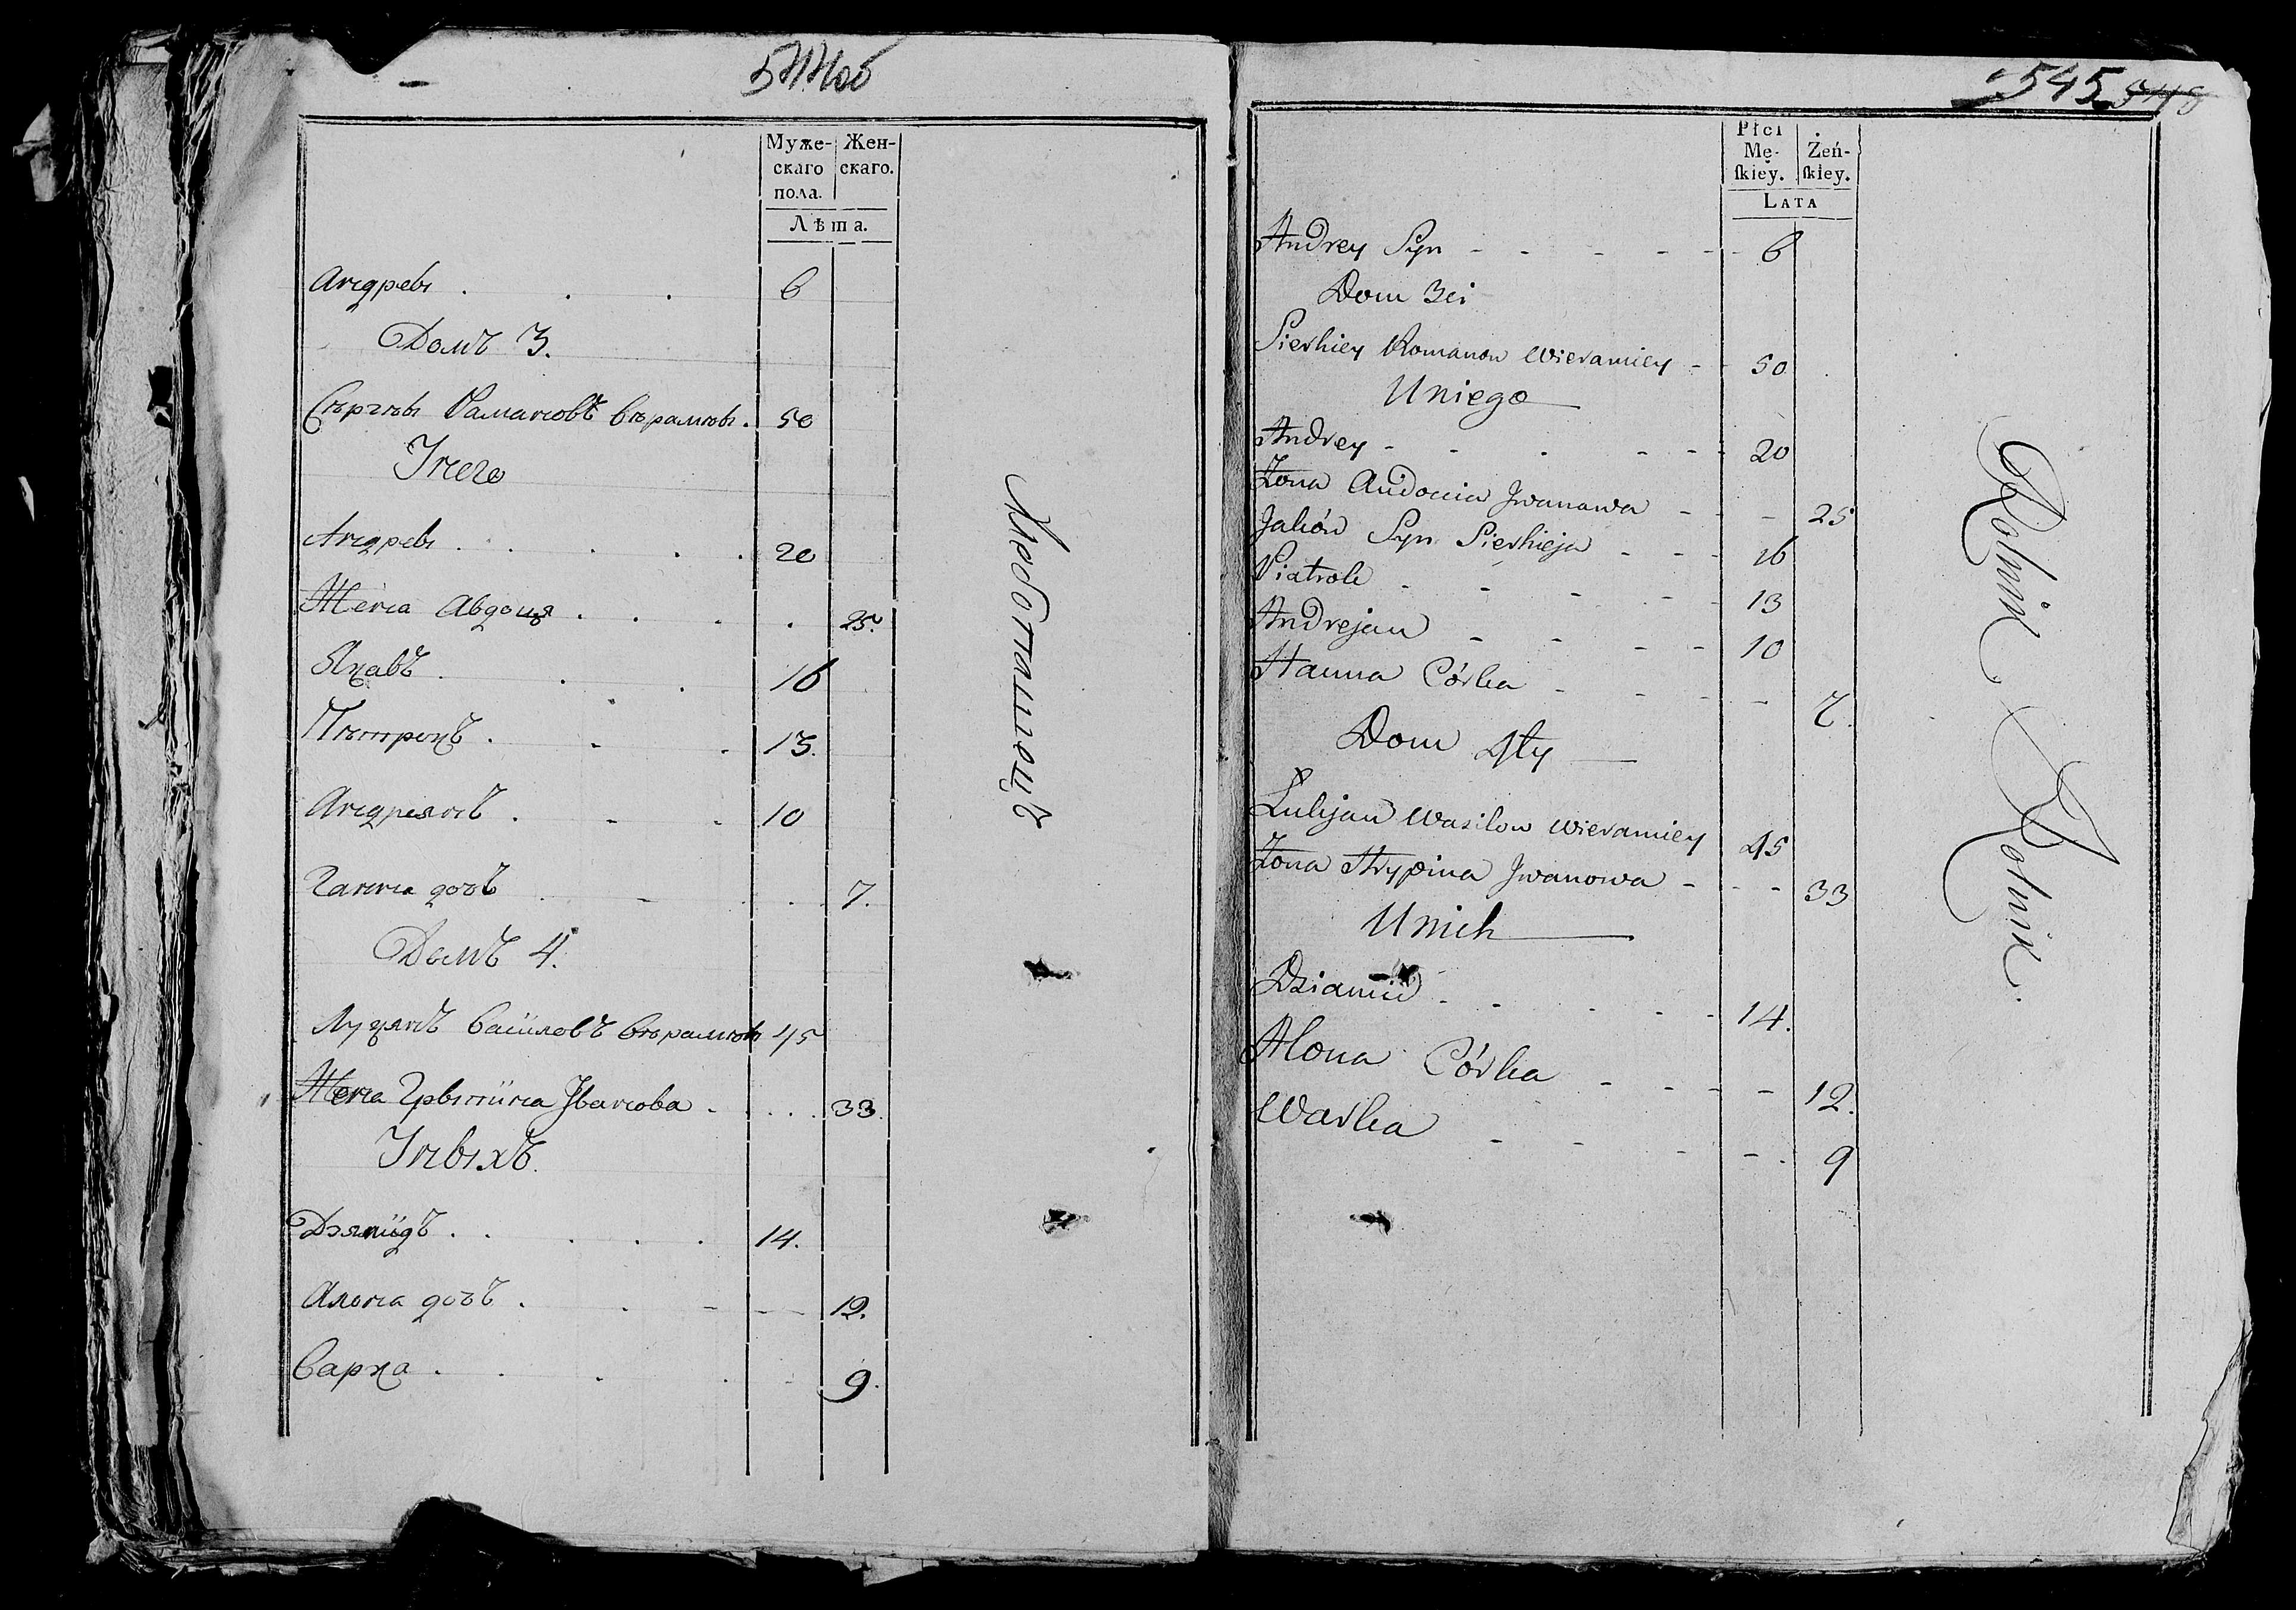 544об
Муже-
скаго
пола.
Жен-
скаго.
Лѣта.
Андреы . . . 6
Домъ 3.
Сѣргѣы Рамановъ Вѣрамѣы. 50
Унего
Андреы . . . . . 20
Жена Авдоця . . . . 25.
Якавъ . . . 16
Пѣтрокъ . - . 13.
Андреянъ . - - 10
Ганна дочъ . - . . 7.
Домъ 4.
Лукянъ Василовъ Вѣрамѣы 45
Жена Грыпина Іванова . . . . 33.
Уныхъ.
Дзямидъ . . . . . 14.
Алена дочъ . . - - 12.
Варка . . . . - 9.
Хлеботашецъ
545 540
Płci
Mę-
skiey.
Żeń-
skiey.
LATA
Andrey Syn - - - - - - 6
Dom 3ci
Sierhiey Romanow Wieramiey - - 50
Uniego
Andrey - - . - - - 20
Żona Audocia Jwanawa - - - 25
Jaków Syn Sierhieja - - - 16
Piatrok - - - - - - 13
Andrejan - - - - 10
Hanna Córka - - - - - 7.
Dom 4ty
Łukjan Wasilow Wieramiey 45
Żona Hrypina Jwanowa - - - 33
Unich
Dziamid - - - - - 14.
Alona Córka - - - - - 12.
Warka - - - - . 9
Rolnik Rolnik.